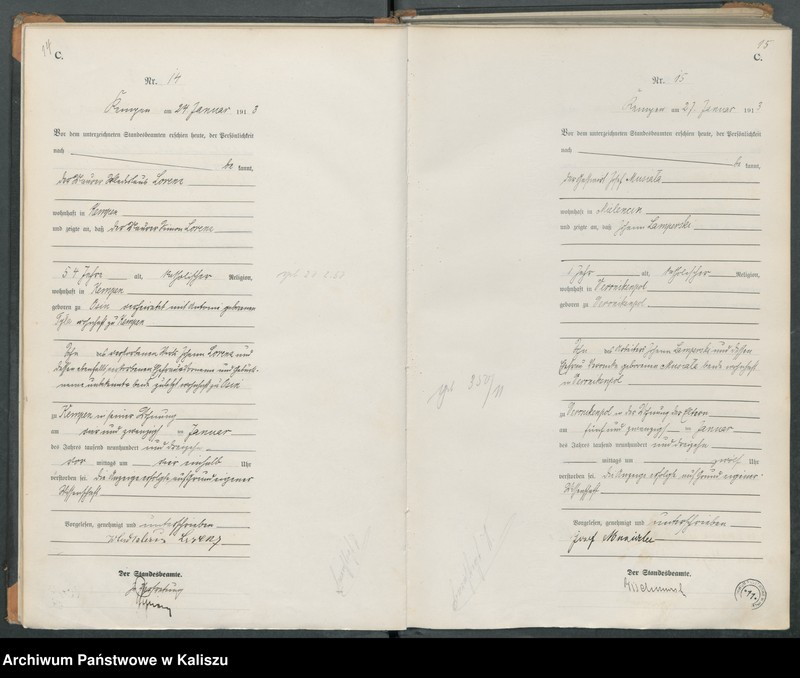 14
C.
Nr. 14
Kempen am 24 Januar 1913
Vor dem unterzeichneten Standesbeamten erschien heute, der Persönlichkeit
nach
be kannt,
der Maurer Wladislaus Lorenz
wohnhaft in Kempen
und zeigte an, daß der Maurer Simon Lorenz
54 Jahre alt, katholischer Religion,
wohnhaft in Kempen
geboren zu Osin verheiratet mit Antonie geborenen
wohnhaft zu Kempen
Sohn des verstorbenen Johann Lorenz und
dessen ebenfalls verstorbenen Ehefrau
unbekannt beide zuletzt wohnhaft zu Osin
zu Kempen in seiner Wohnung
am vier und zwanzigsten Januar
des Jahres tausend neunhundert und dreizehn
vor mittags um vier einhalb Uhr
verstorben sei. Die Anzeige erfolgte auf Grund eigener
Wissenschaft
Vorgelesen, genehmigt und unterschrieben
Wladislaus Lorenz
Der Standesbeamte.
In Vertretung
15
C.
Nr. 15
Kempen am 27. Januar 1913
Vor dem unterzeichneten Standesbeamten erschien heute, der Persönlichkeit
nach
be kannt,
der Josef Musiala
wohnhaft in
und zeigte an, daß Johann Lamperski
1 Jahr alt, katholischer Religion,
wohnhaft in
geboren zu
Sohn des Arbeiters Johann Lamperski und dessen
Ehefrau Veronika geborenen Musiala beide wohnhaft
in
zu in der Wohnung der Eltern
am fünf und zwanzigsten Januar
des Jahres tausend neunhundert und dreizehn
mittags um zwölf Uhr
verstorben sei. Die Anzeige erfolgte auf Grund eigener
Wissenschaft
Vorgelesen, genehmigt und unterschrieben
Der Standesbeamte.
Archiwum Państwowe w Kaliszu